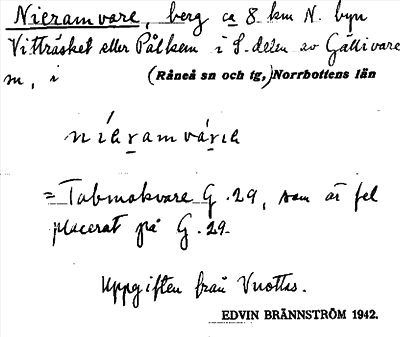 Nieramvare, berg ca 8 km N. byn
Vitträsket eller Pålkem i S. delen av Gällivare
m, i (Råneå sn och tg,) Norrbottens län
níeramvárıe
= Tabmokvare G. 29, som är fel
placerat på G. 29.
Uppgiften från Vuottas.
EDVIN BRÄNNSTRÖM 1942.